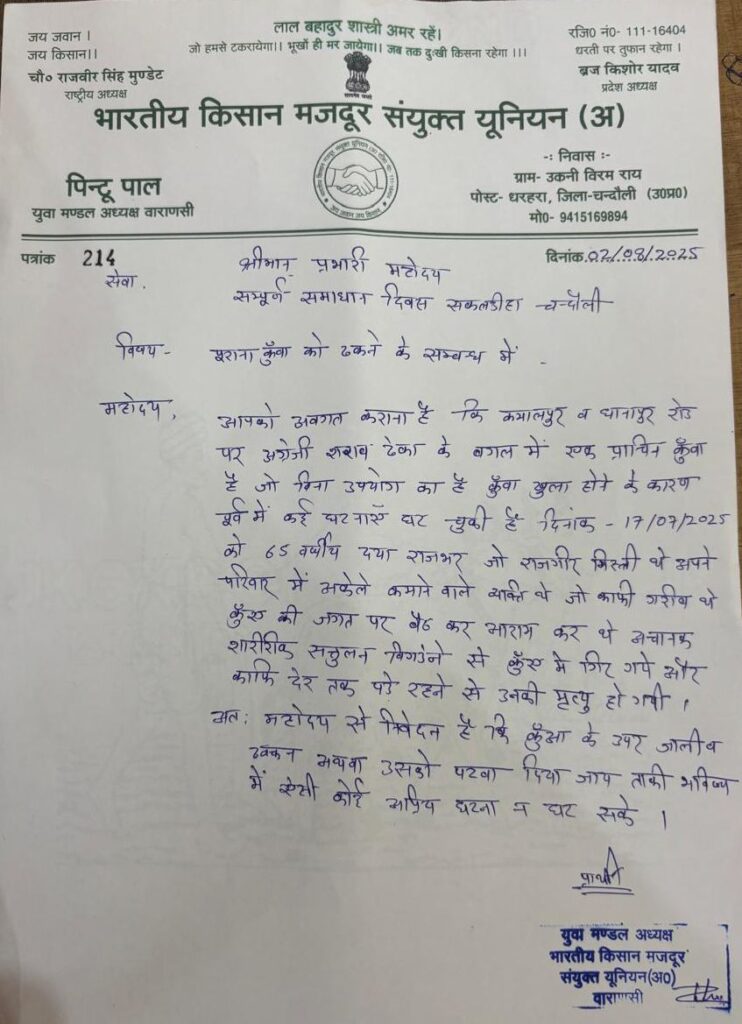 लाल बहादुर शास्त्री अमर रहें।
जय जवान ।
जय किसान।।
जो हमसे टकरायेगा।। भूखों ही मर जायेगा।। जब तक दुःखी किसना रहेगा ।।।
रजि0 नं0- 111-16404
धरती पर तुफान रहेगा ।
चौ० राजवीर सिंह मुण्डेट
राष्ट्रीय अध्यक्ष
ब्रज किशोर यादव
प्रदेश अध्यक्ष
भारतीय किसान मजदूर संयुक्त यूनियन (अ)
पिन्टू पाल
युवा मण्डल अध्यक्ष वाराणसी
-: निवास :-
ग्राम- उकनी विरम राय
पोस्ट- धरहरा, जिला-चन्दौली (उ0प्र0)
मो0- 9415169894
पत्रांक 214
दिनांक.02/08/2025
सेवा.
श्रीमान् प्रभारी महोदय
सम्पूर्ण समाधान दिवस सकलडीहा चन्दौली
विषय- पूराना कुँवा को ढकने के सम्बन्ध में .
महोदय,
आपको अवगत कराना है कि कमालपुर व धानापुर रोड
पर अग्रेजी शराब ठेका के बगल में एक प्राचिन कुँवा
है जो बिना उपयोग का है कुँवा खुला होने के कारण
पूर्व में कई घटनाएँ घट चुकी है दिनांक - 17/07/2025
को 65 वर्षीय दया राजभर जो राजगीर मिस्त्री थे अपने
परिवार में अकेले कमाने वाले व्यक्ति थे जो काफी गरीब थे
कुँए की जगत पर बैठ कर आराम कर थे अचानक
शारीरिक सन्तुलन बिगडने से कुँए मे गिर गये और
काफि देर तक पडे रहने से उनकी मृत्यु हो गयी ।
अतः महोदय से निवेदन है कि कुँआ के उपर जाली व
ढक्कन अथवा उसको पटवा दिया जाय ताकी भविष्य
में ऐसी कोई अप्रिय घटना न घट सके ।
प्रार्थी
युवा मण्डल अध्यक्ष
भारतीय किसान मजदूर
संयुक्त यूनियन(अ0)
वाराणसी